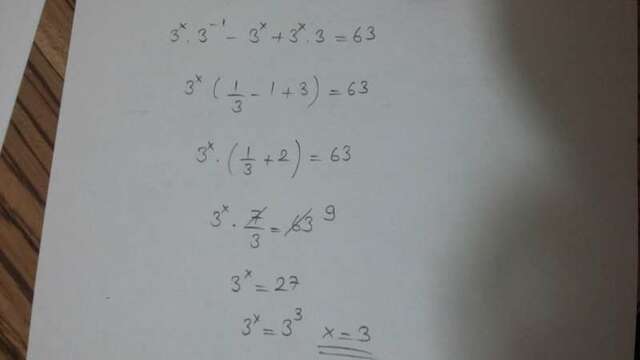 3ˣ · 3⁻¹ - 3ˣ + 3ˣ · 3 = 63
3ˣ (1/3 - 1 + 3) = 63
3ˣ · (1/3 + 2) = 63
3ˣ · 7/3 = 63 9
3ˣ = 27
3ˣ = 3³ x = 3